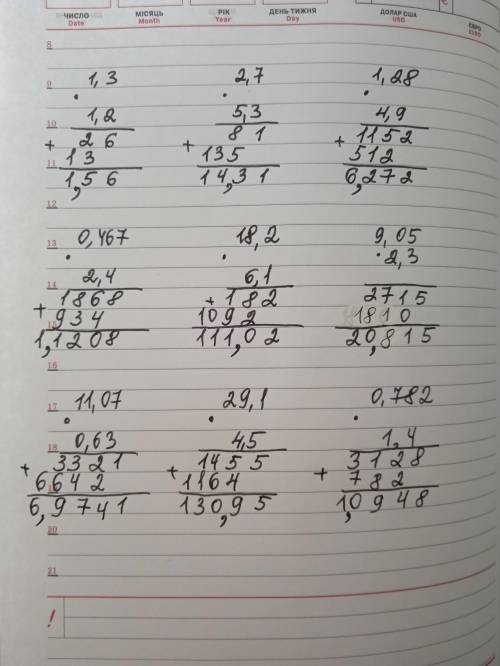 ЧИСЛО МІСЯЦЬ РІК ДЕНЬ ТИЖНЯ ДОЛАР США ЄВРО
Date Month Year Day USD EURO
8
9 1,3 2,7 1,28
· · ·
10 1,2 5,3 4,9
+ 26 + 81 + 1152
11 13 135 512
1,56 14,31 6,272
12
13 0,467 18,2 9,05
· · · 2,3
14 2,4 6,1
+ 1868 + 182 2715
15 934 1092 1810
1,1208 111,02 20,815
16
17 11,07 29,1 0,782
· · ·
18 0,63 4,5 1,4
+ 3321 + 1455 + 3128
6642 1164 782
6,9741 130,95 1,0948
20
21
!